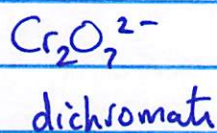 Cr₂O₇²⁻
dichromate